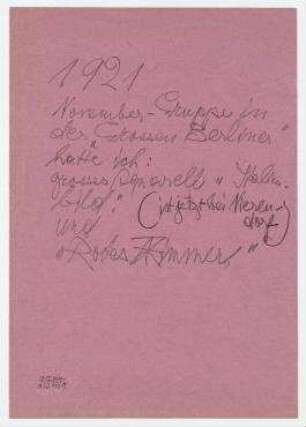 1921
November-Gruppe in
der „Grossen Berliner"
hatte ich:
grosses Aquarell „
bild". (ist jetzt bei Nieren-
dorf)
und
„Rotes Zimmer"